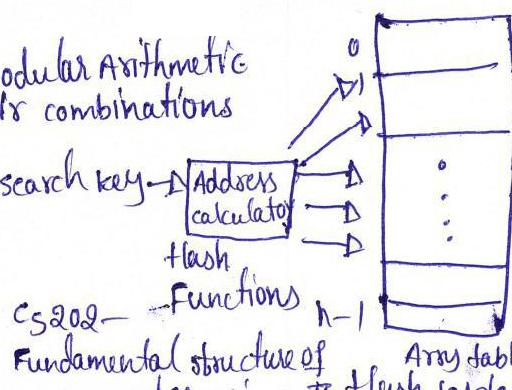 odular Arithmetic
r combinations
0
1
search key
Address
calculator
Hash
Functions
n-1
CS202-
Fundamental structure of
Array tabl
Hash